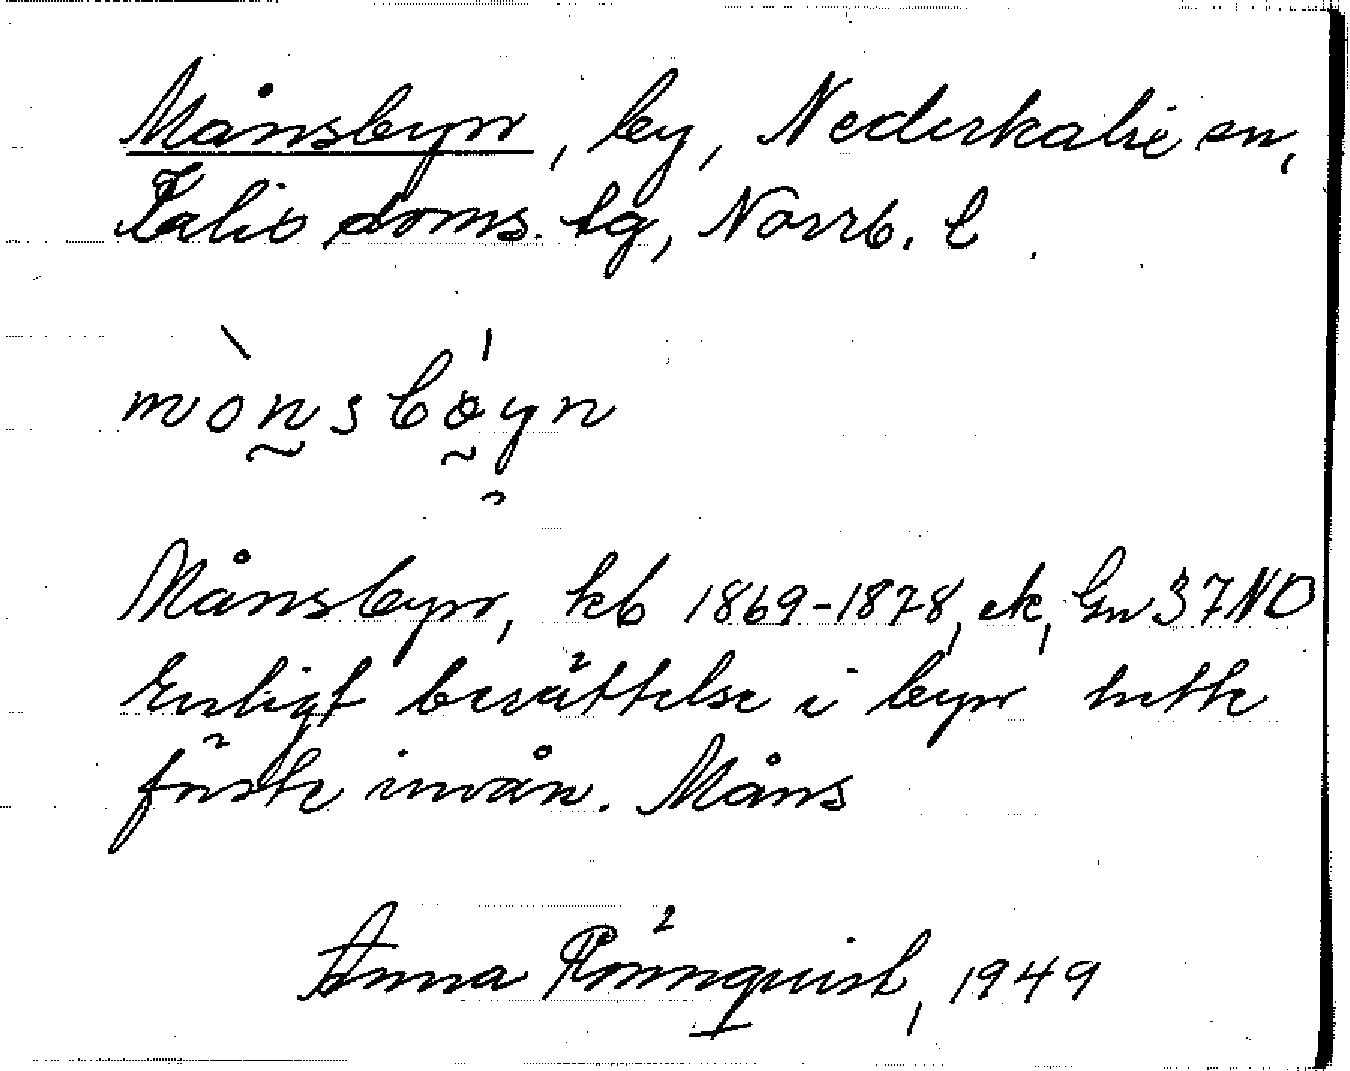 Månsbyn, by, Nederkalix sn,
Kalix doms. tg, Norrb. l
mònsbóyn
Månsbyn, kb 1869-1878, ek, Gn 37NO
Enligt berättelse i byn hette
förste invån. Måns
Anna Rönnquist, 1949